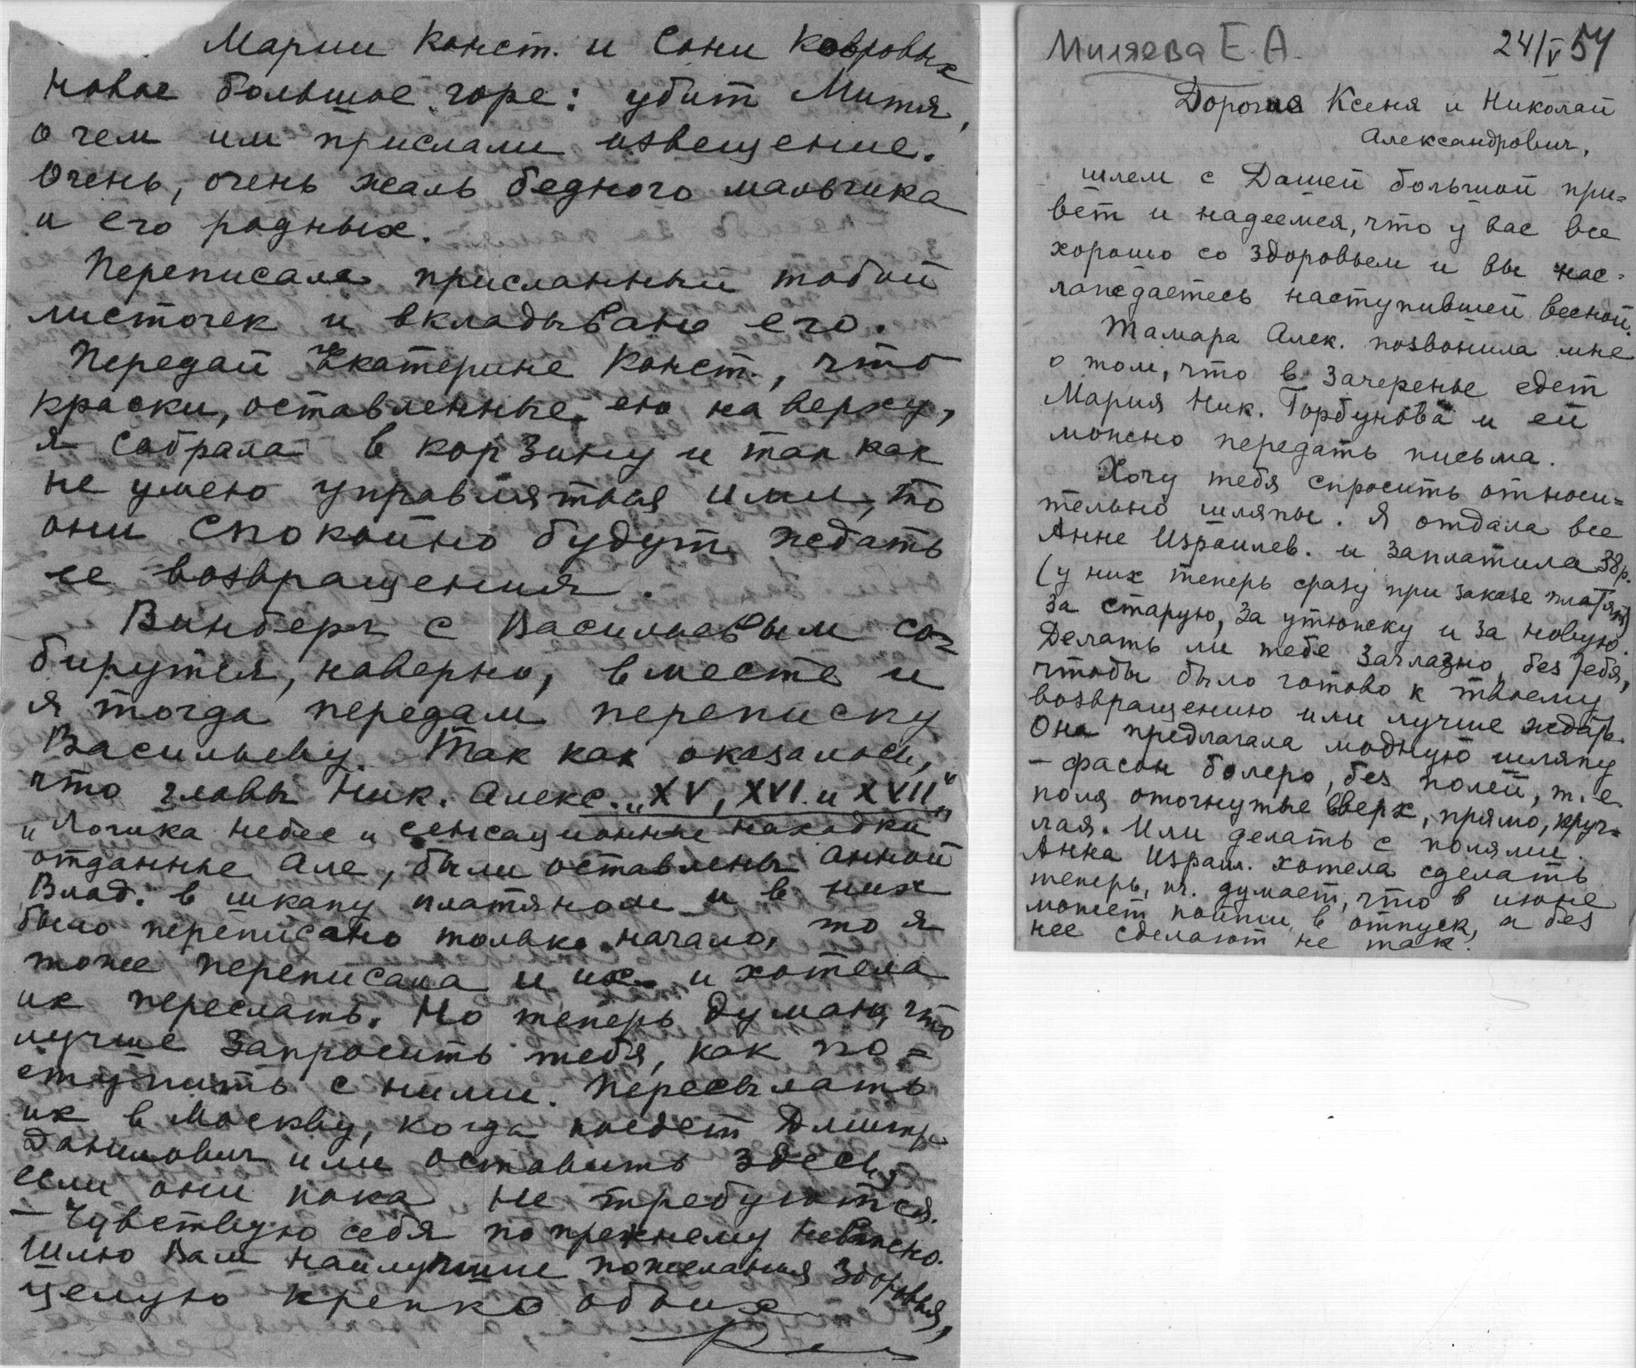 Марии Конст. и Сони Ковровых
новое большое горе: убит Митя,
о чем им прислали извещение.
Очень, очень жаль бедного мальчика
и его родных.
Переписала присланный тобой
листочек и вкладываю его.
Передай Екатерине Конст., что
краски, оставленные ею на верху,
я собрала в корзину и так как
не умею управляться ими, то
они спокойно будут ждать
ее возвращения.
Винберг с Васильевым со=
бирутся, наверно, вместе и
я тогда передам переписку
Васильеву. Так как оказалось,
что главы Ник. Алекс. „XV, XVI и XVII"
и „Логика небес и сенсационные находки"
отданные Але, были оставлены Анной
Влад. в шкапу платяном и в них
было переписано только начало, то я
тоже переписала и их и хотела
их переслать. Но теперь думаю, что
лучше запросить тебя, как по=
ступить с ними. Пересылать
их в Москву, когда поедет Дмитр.
Данилович или оставить здесь,
если они пока не требуются.
– Чувствую себя по прежнему неважно.
Шлю Вам наилучшие пожелания здоровья,
целую крепко обоих
Миляева Е. А. 24/V 54
Дорогие Ксеня и Николай
Александрович,
шлем с Дашей большой при=
вет и надеемся, что у вас все
хорошо со здоровьем и вы нас=
лаждаетесь наступившей весной.
Тамара Алек. позвонила мне
о том, что в Зачеренье едет
Мария Ник. Горбунова и ей
можно передать письма.
Хочу тебя спросить относи=
тельно шляпы. Я отдала все
Анне Израилев. и заплатила 38р.
(у них теперь сразу при заказе платят)
за старую, за утюжку и за новую.
Делать ли тебе заглазно, без тебя,
чтобы было готово к твоему
возвращению или лучше ждать.
Она предлагала модную шляпу
– фасон болеро, без полей, т.е.
поля отогнутые вверх, прямо, круг=
лая. Или делать с полями.
Анна Израил. хотела сделать
теперь, п.ч. думает, что в июне
может пойти в отпуск, а без
нее сделают не так.